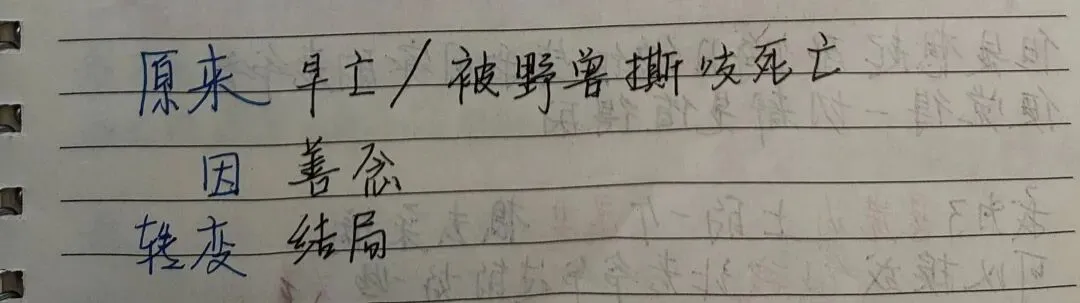 原来 早亡/被野兽撕咬死亡
因 善念
转变 结局